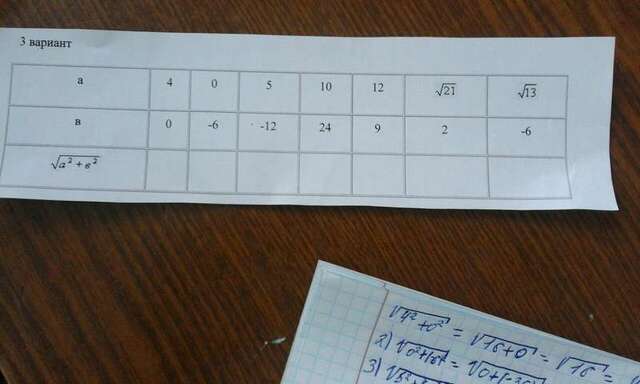 3 вариант
а 4 0 5 10 12 √21 √13
в 0 -6 -12 24 9 2 -6
√a²+в²
√4²+0² = √16+0 = √16 =
2) √0²+
3)